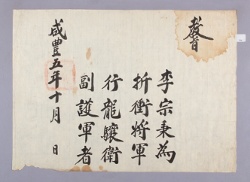 教旨
李宗秉爲
折衝將軍
行龍驤衛
副護軍者
咸豐五年十月 日